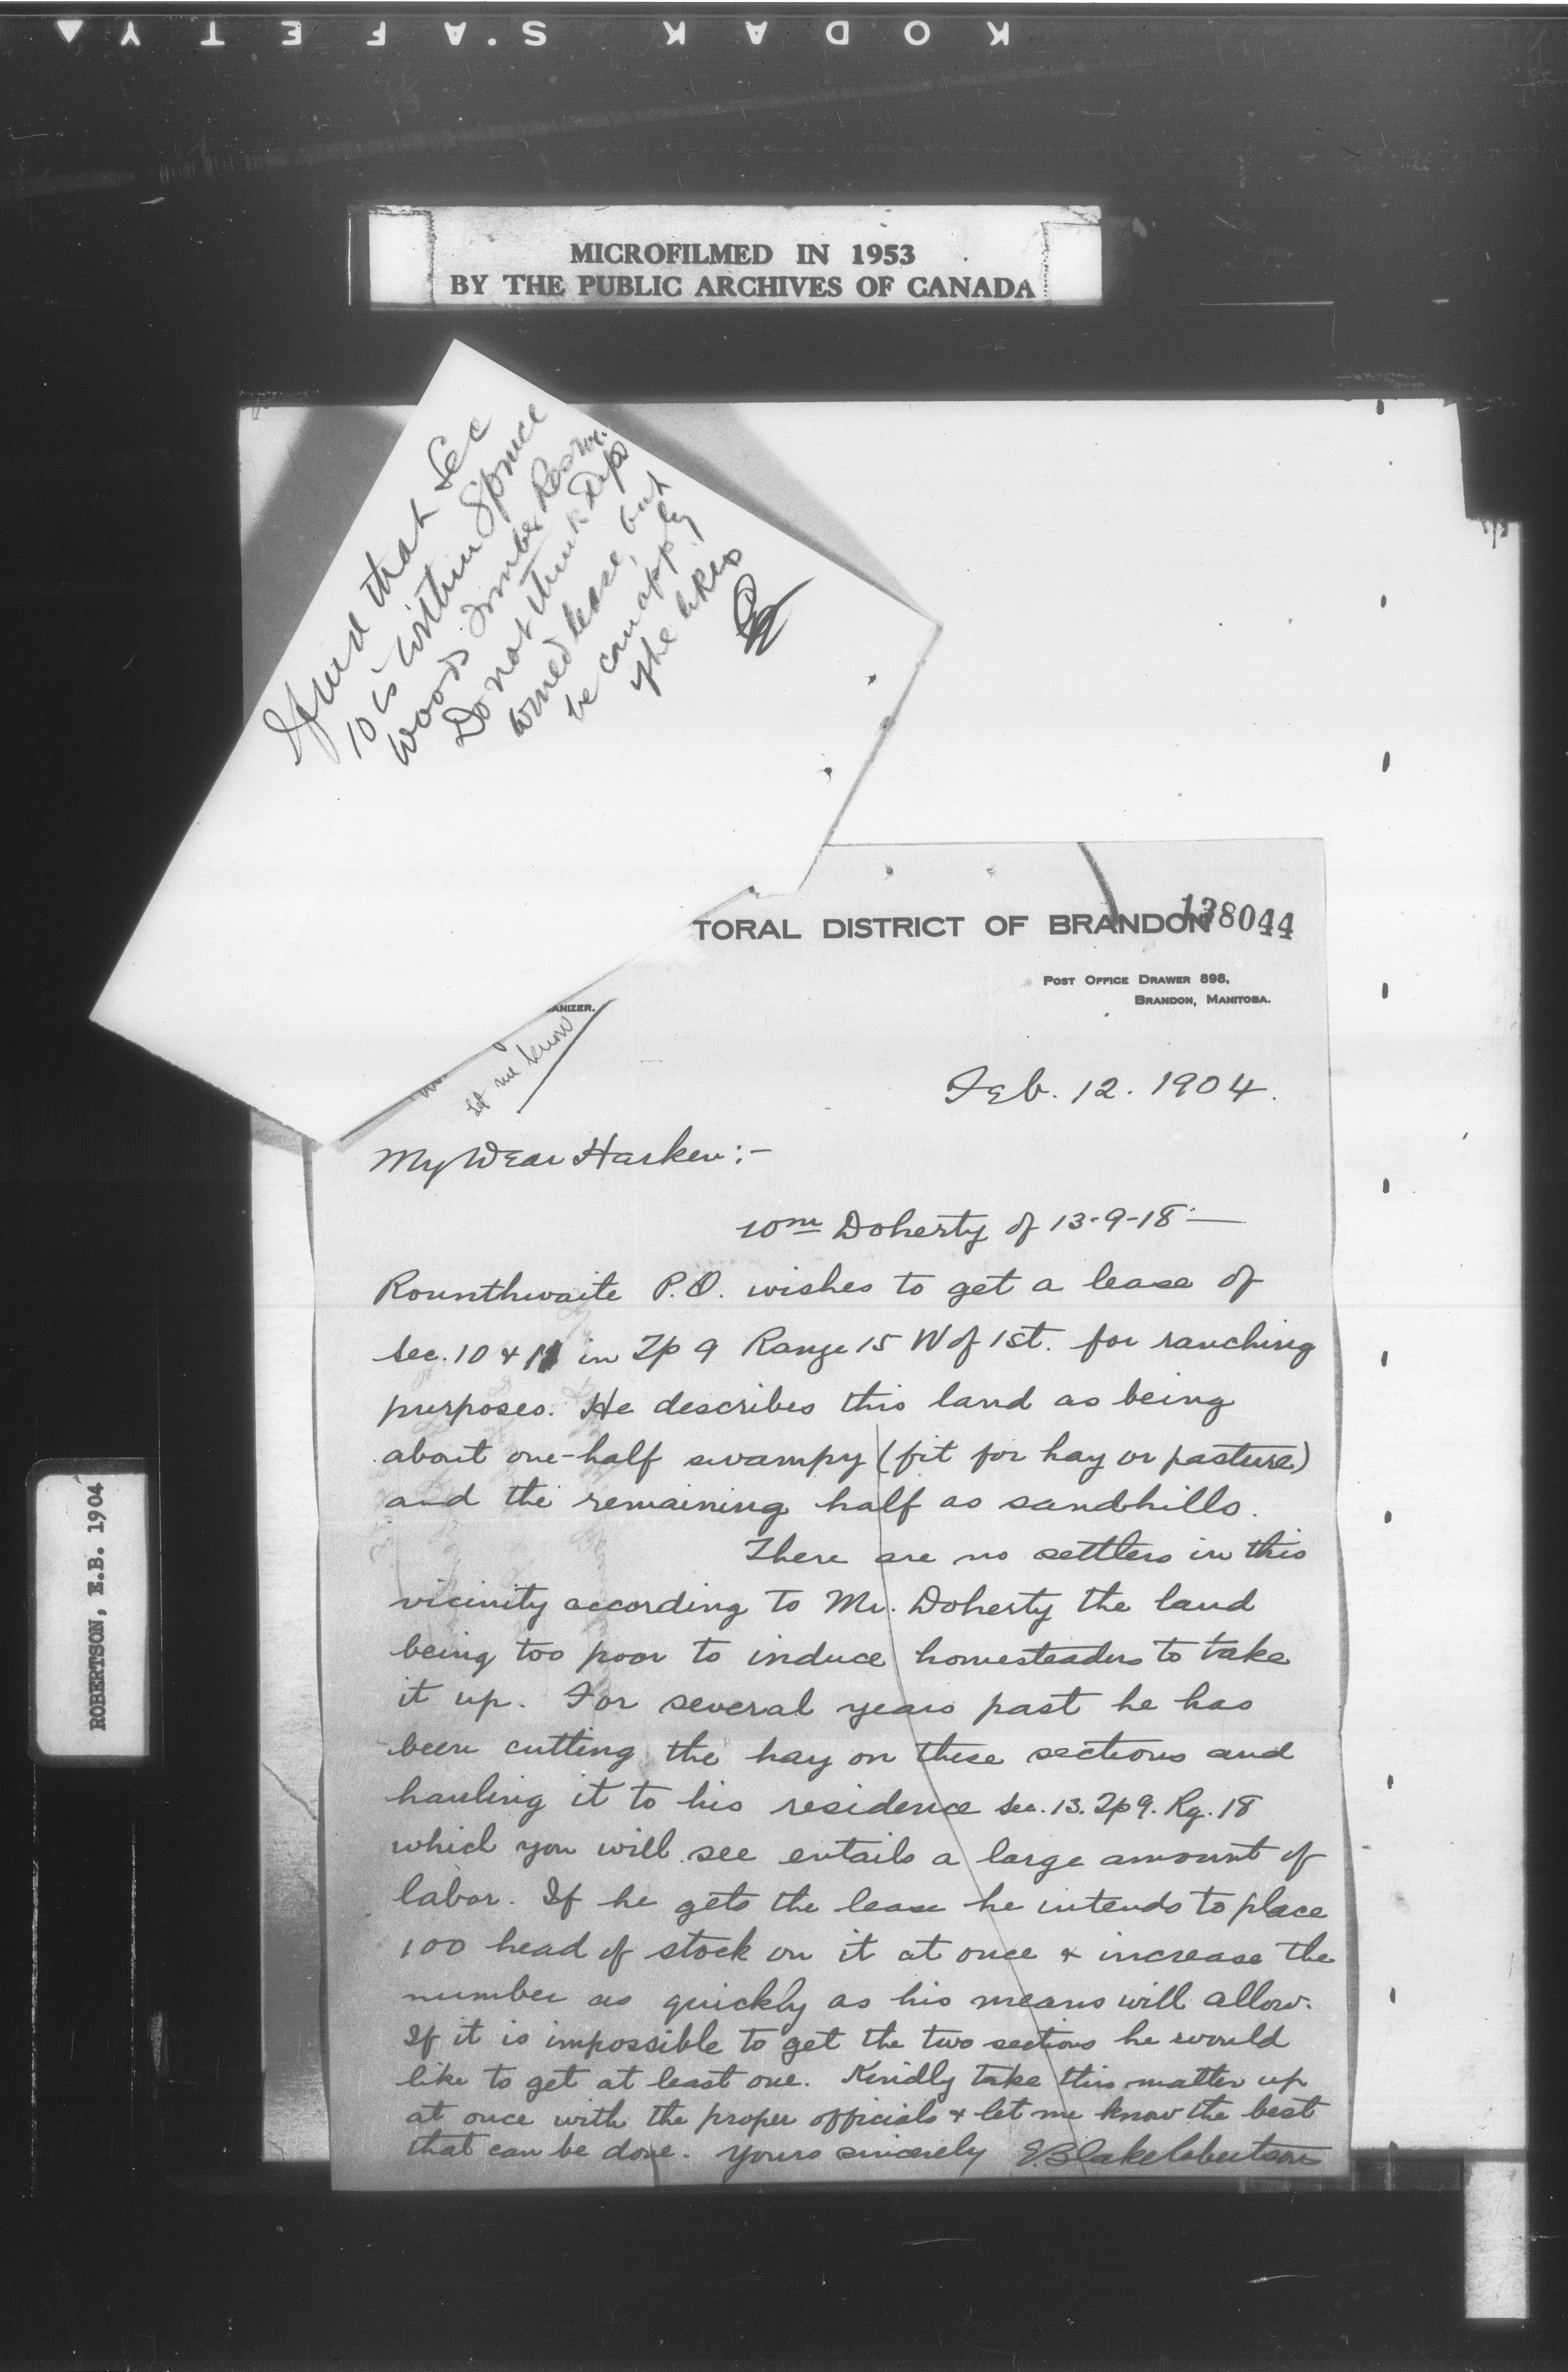 KODAK SAFETY
MICROFILMED IN 1953
BY THE PUBLIC ARCHIVES OF CANADA
I find that Sec
10 is within Spruce
Woods Timber Reserve.
Do not think Dep
would lease, but
he can apply
if he likes
138044
TORAL DISTRICT OF BRANDON
POST OFFICE DRAWER 898,
BRANDON, MANITOBA.
ANIZER.
let me know
Feb. 12. 1904.
My Dear Harken:-
Wm Doherty of 13-9-18-
Rounthwaite P.O. wishes to get a lease of
Sec. 10 & 11 in Tp 9 Range 15 W of 1st. for ranching
purposes. He describes this land as being
about one-half swampy (fit for hay or pasture)
and the remaining half as sandhills.
There are no settlers in this
vicinity according to Mr. Doherty the land
being too poor to induce homesteaders to take
it up. For several years past he has
been cutting the hay on these sections and
hauling it to his residence Sec. 13. Tp 9. Rg. 18
which you will see entails a large amount of
labor. If he gets the lease he intends to place
100 head of stock on it at once & increase the
number as quickly as his means will allow.
If it is impossible to get the two sections he would
like to get at least one. Kindly take this matter up
at once with the proper officials & let me know the best
that can be done. Yours sincerely E. Blake Robertson
ROBERTSON, E.B. 1904